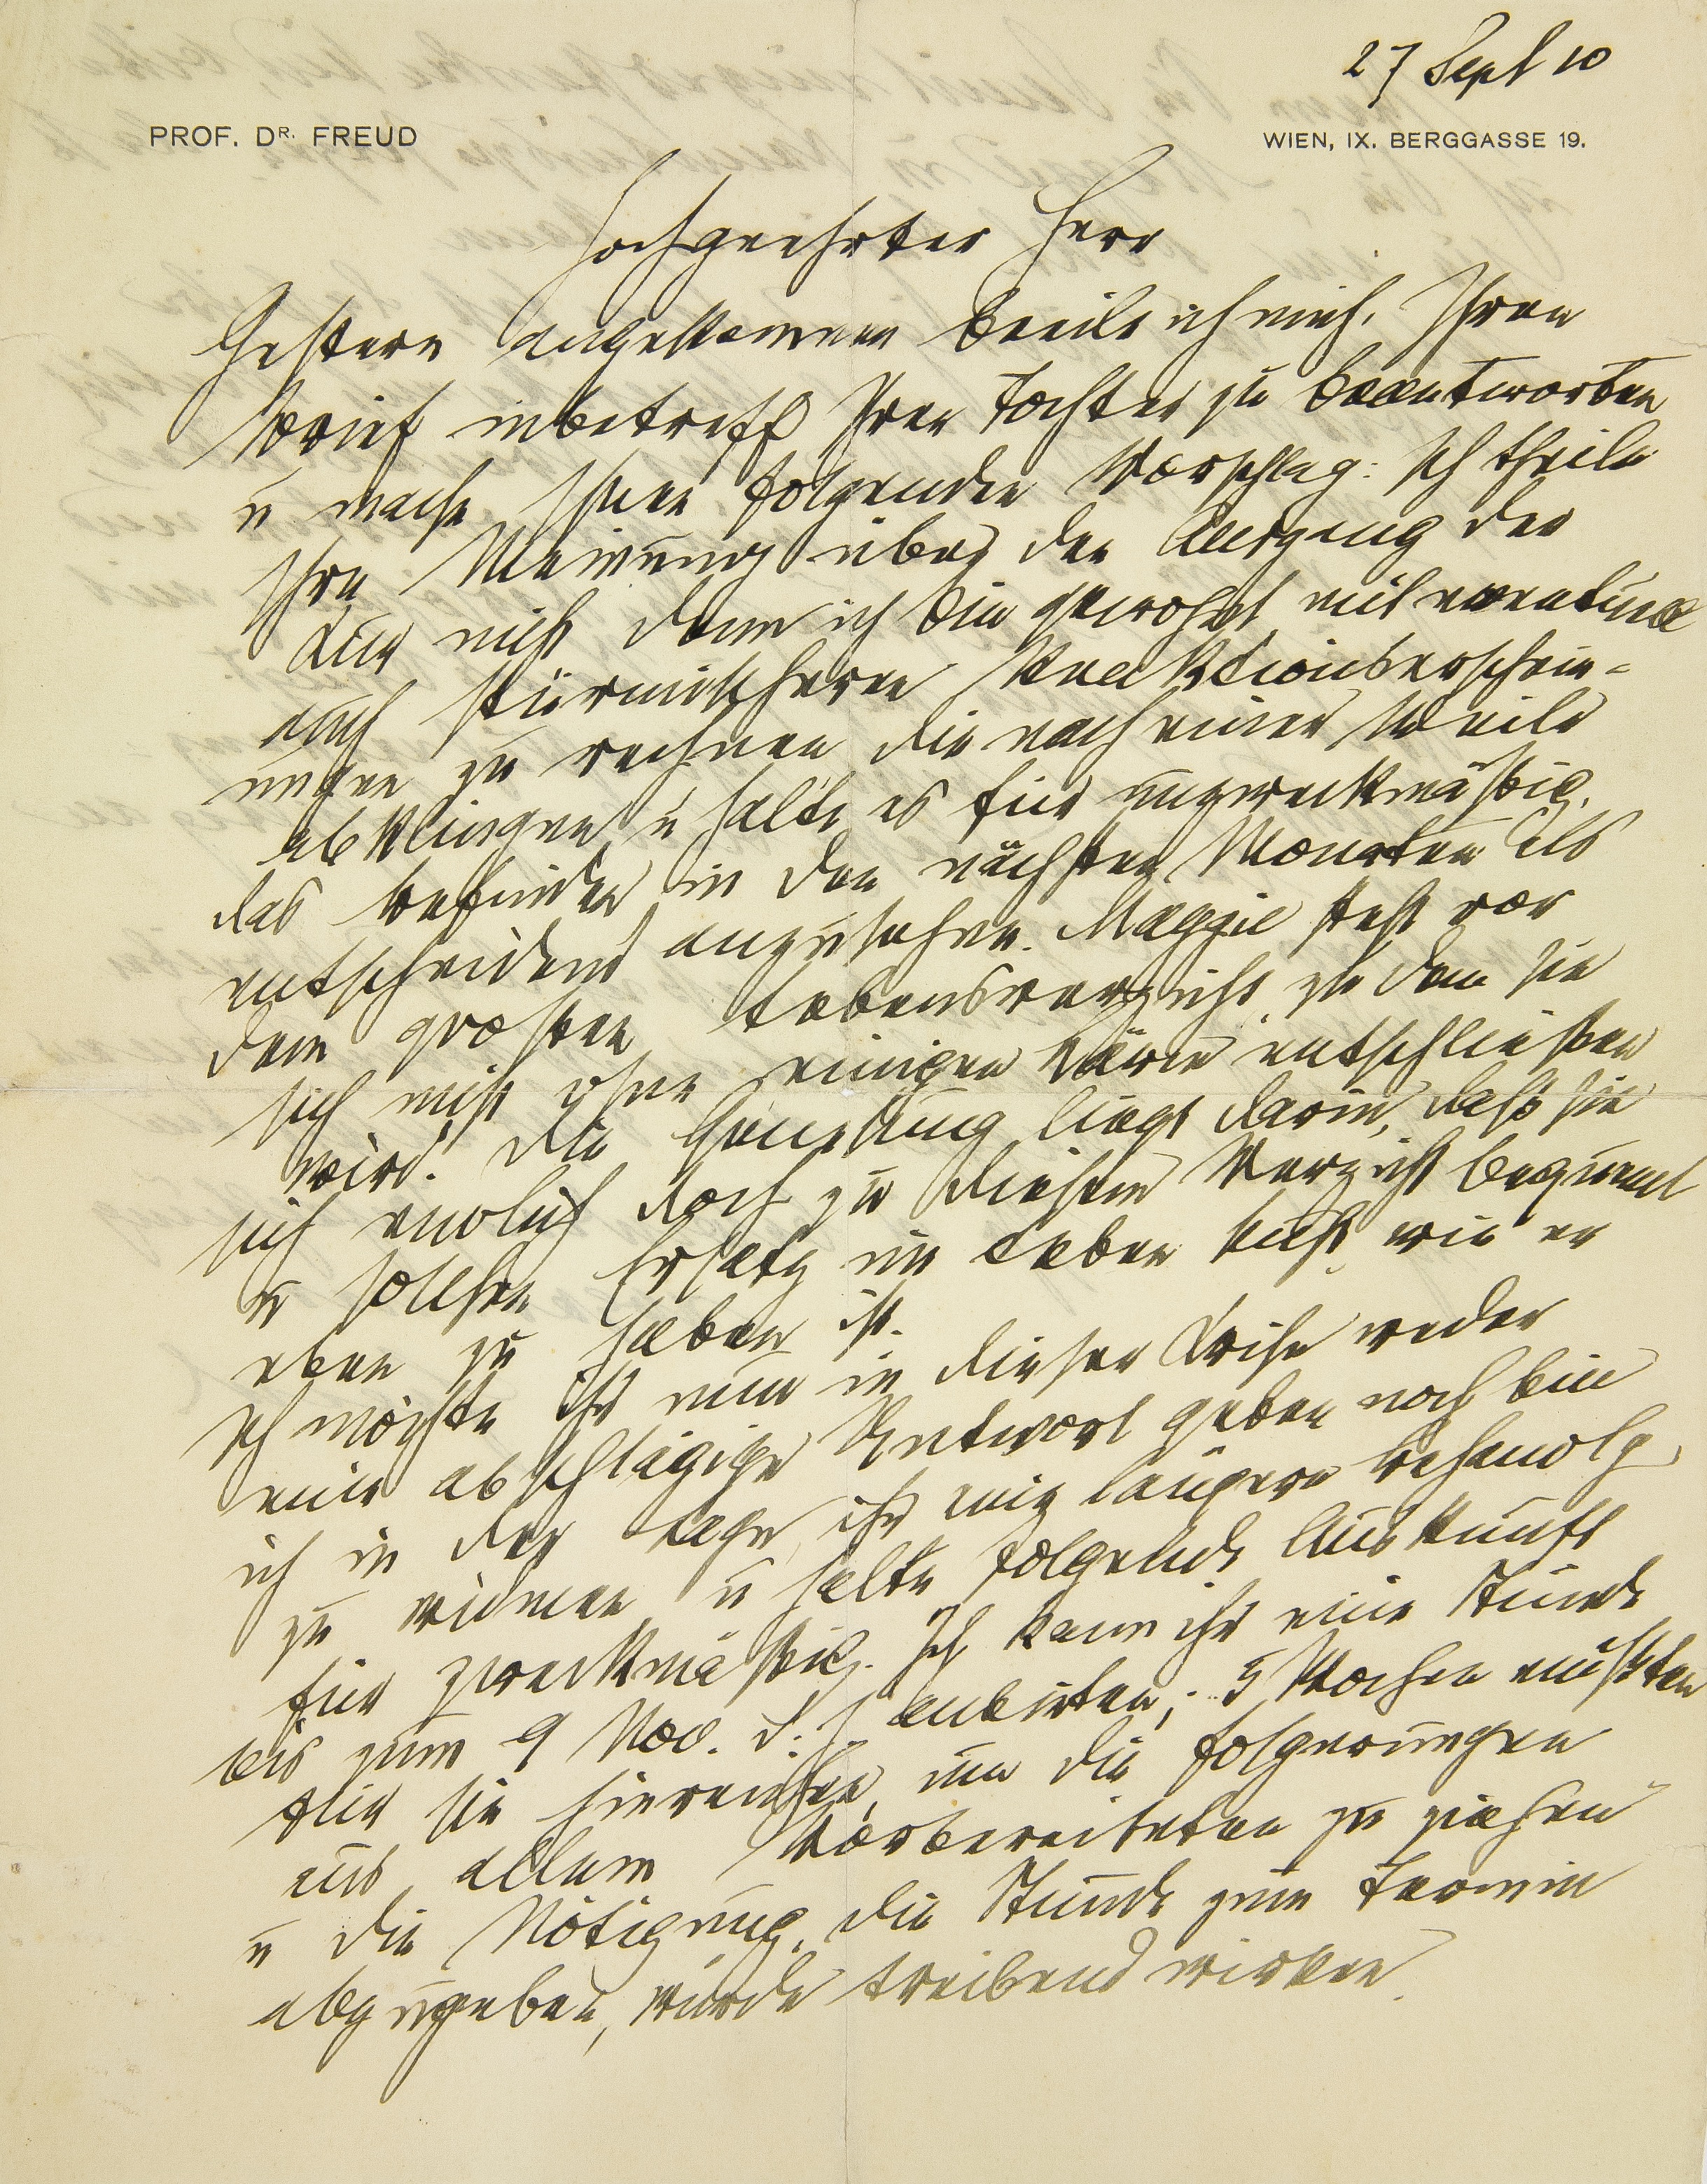 27 Sept 10
PROF. DR. FREUD
WIEN, IX. BERGGASSE 19.
Hochgeehrter Herr
Gestern angekommen beeile ich mich, Ihren
Brief inbetreff Ihrer Tochter zu beantworten
u mache Ihnen folgenden Vorschlag: Ich theile
Ihre Meinung über den Ausgang der
Kur nicht denn ich bin gewohnt mit eventuell
auch stürmischeren Reaktionserschein-
ungen zu rechnen die nach einer Weile
abklingen u halte es für unzweckmäßig,
das Befinden in den nächsten Monaten als
entscheidend anzusehen. Maggie steht vor
dem großen Lebensverzicht zu dem sie
sich nicht ohne einigen Lärm entschließen
wird. Die Genesung liegt darin, daß sie
sich endlich doch zu diesem Verzicht bequemt
u solchen Ersatz im Leben sucht, wie er
eben zu haben ist.
Ich möchte ihr nun in dieser Krise weder
eine abschlägige Antwort geben noch bin
ich in der Lage, ihr eine längere Behandlg
zu widmen u halte folgende Auskunft
für zweckmäßig. Ich kann ihr eine Stunde
bis zum 9 Nov. d. J anbieten; 5 Wochen müßten
für sie hinreichen, um die Folgerungen
aus allem Vorbereiteten zu ziehen
u die Nötigung, die Stunde zum Termin
abzugeben, würde treibend wirken.